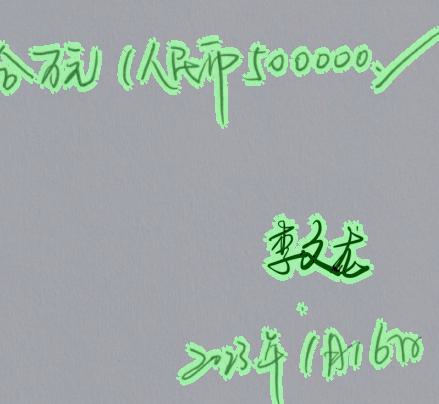 拾万元（人民币500000.
李文龙
2023年1月16日